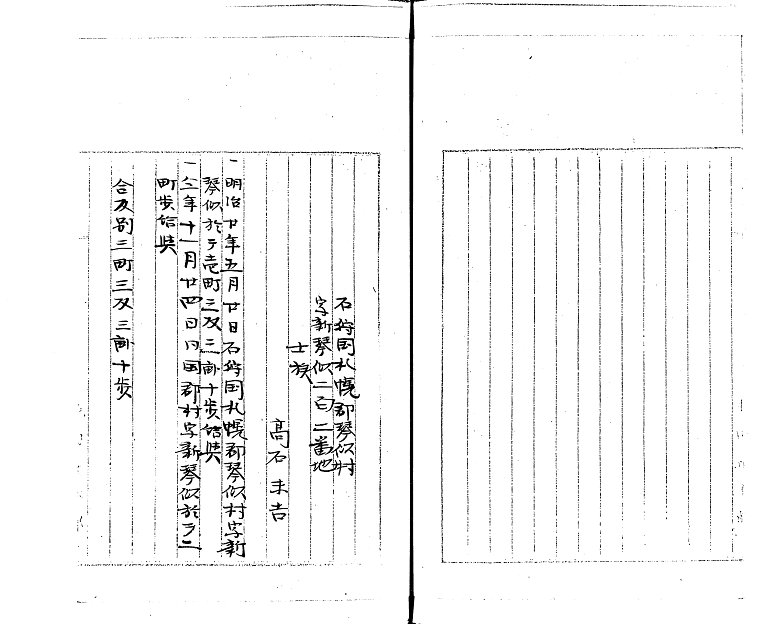 石狩国札幌郡琴似村
字新琴似二百二番地
士族
高石末吉
一明治廿年五月廿日石狩国札幌郡琴似村字新
琴似於テ壱町三反三畝十歩給與
一仝年十一月廿四日同国郡村字新琴似於テ二
町歩給與
合反別三町三反三畝十歩